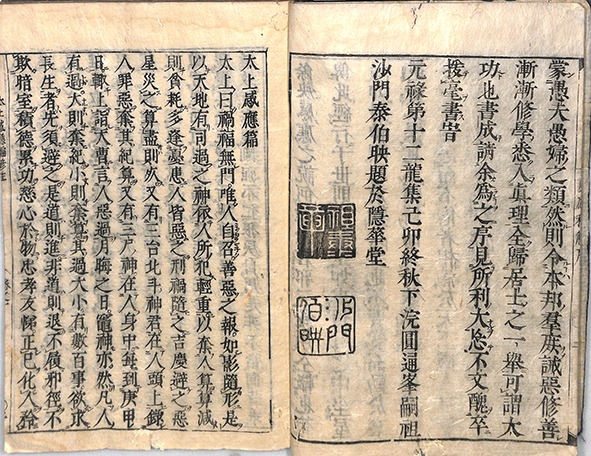 蒙愚夫愚婦之類然則令本邦羣族誡惡修善
漸漸修學悉入眞理全歸居士之一舉可謂大
功也書成請余為之序見所利大忘不文醜卒
援毫書旹
元祿第十二龍集己卯終秋下浣圓通峯嗣祖
沙門泰伯映題於隱華堂
沙門
太上感應篇
太上曰禍福無門唯人自召善惡之報如影隨形是
以天地有司過之神依人所犯輕重以奪人算算減
則貧耗多逢憂患人皆惡之刑禍隨之吉慶避之惡
星災之算盡則死又有三台北斗神君在人頭上錄
人罪惡奪其紀算又有三尸神在人身中每到庚申
日輒上詣天曹言人惡過月晦之日竈神亦然凡人
有過大則奪紀小則奪算其過大小有數百事欲求
長生者先須避之是道則進非道則退不履邪徑不
欺暗室積德累功慈心於物忠孝友悌正己化人矜